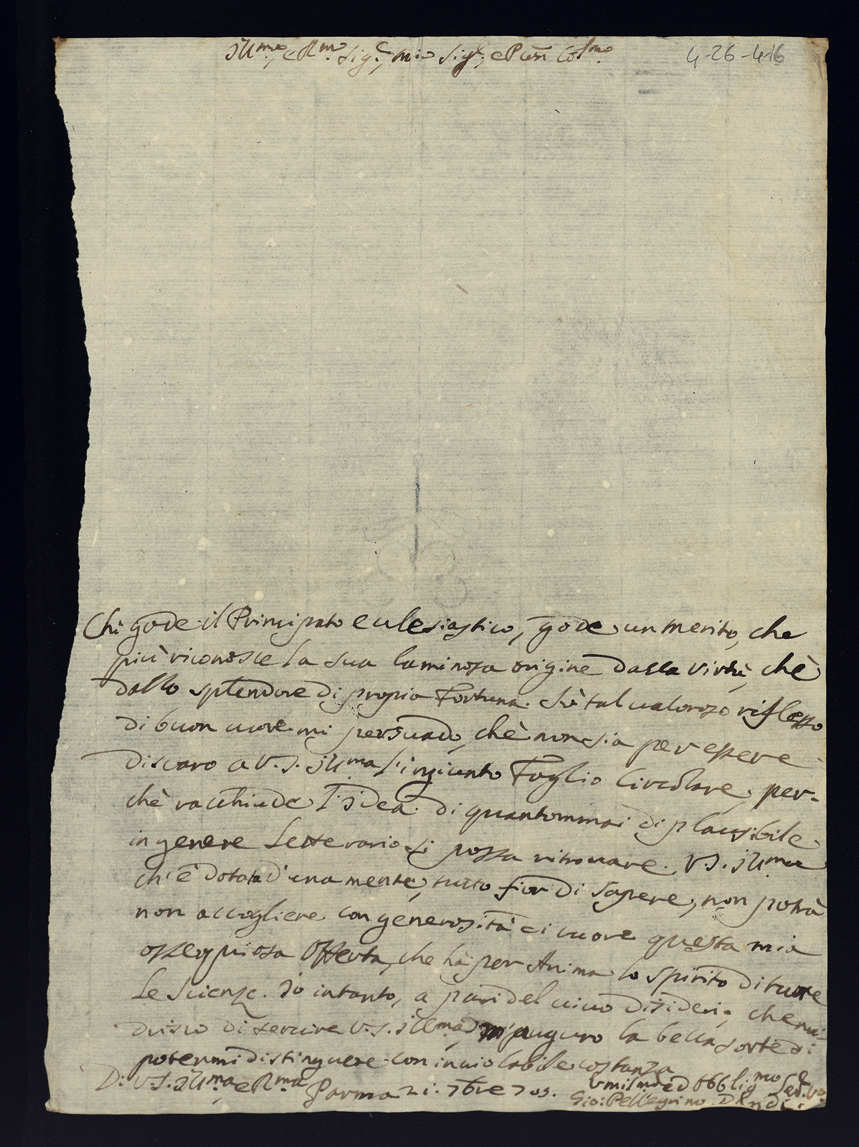 Ill.mo, e R.mo Sig.r, mio Sig.r, e Pron Col.mo
4-26-416
Chi gode il Principato eclesiastico, gode un merito, che
più riconosce la sua luminosa origine dalla virtù, chè
dallo splendore di propria Fortuna. che tal valoroso riflesso
di buon cuore mi persuado, chè non sia per essere
discaro a V.S. Ill.ma l'ingiunto Foglio Circolare, per-
chè racchiude l'idea di quantommai di plausibile
in genere Letterario si possa ritrovare. V.S. Ill.ma
ch'è dotata d'una mente, tutto fior di sapere, non potrà
non accogliere con generosità di cuore questa mia
ossequiosa offerta, che hà per Anima lo spirito di tutte
le scienze. Io intanto, a pari del vivo disiderio, che
di servire V.S. Ill.ma, m'auguro la bella sorte di
potermi distinguere con inviolabile costanza
Di V.S. Ill.ma e R.ma
Parma 21. 7bre 703.
Umil.mo ed Obblig.mo Ser.re
Gio: Pellegrino Dandi